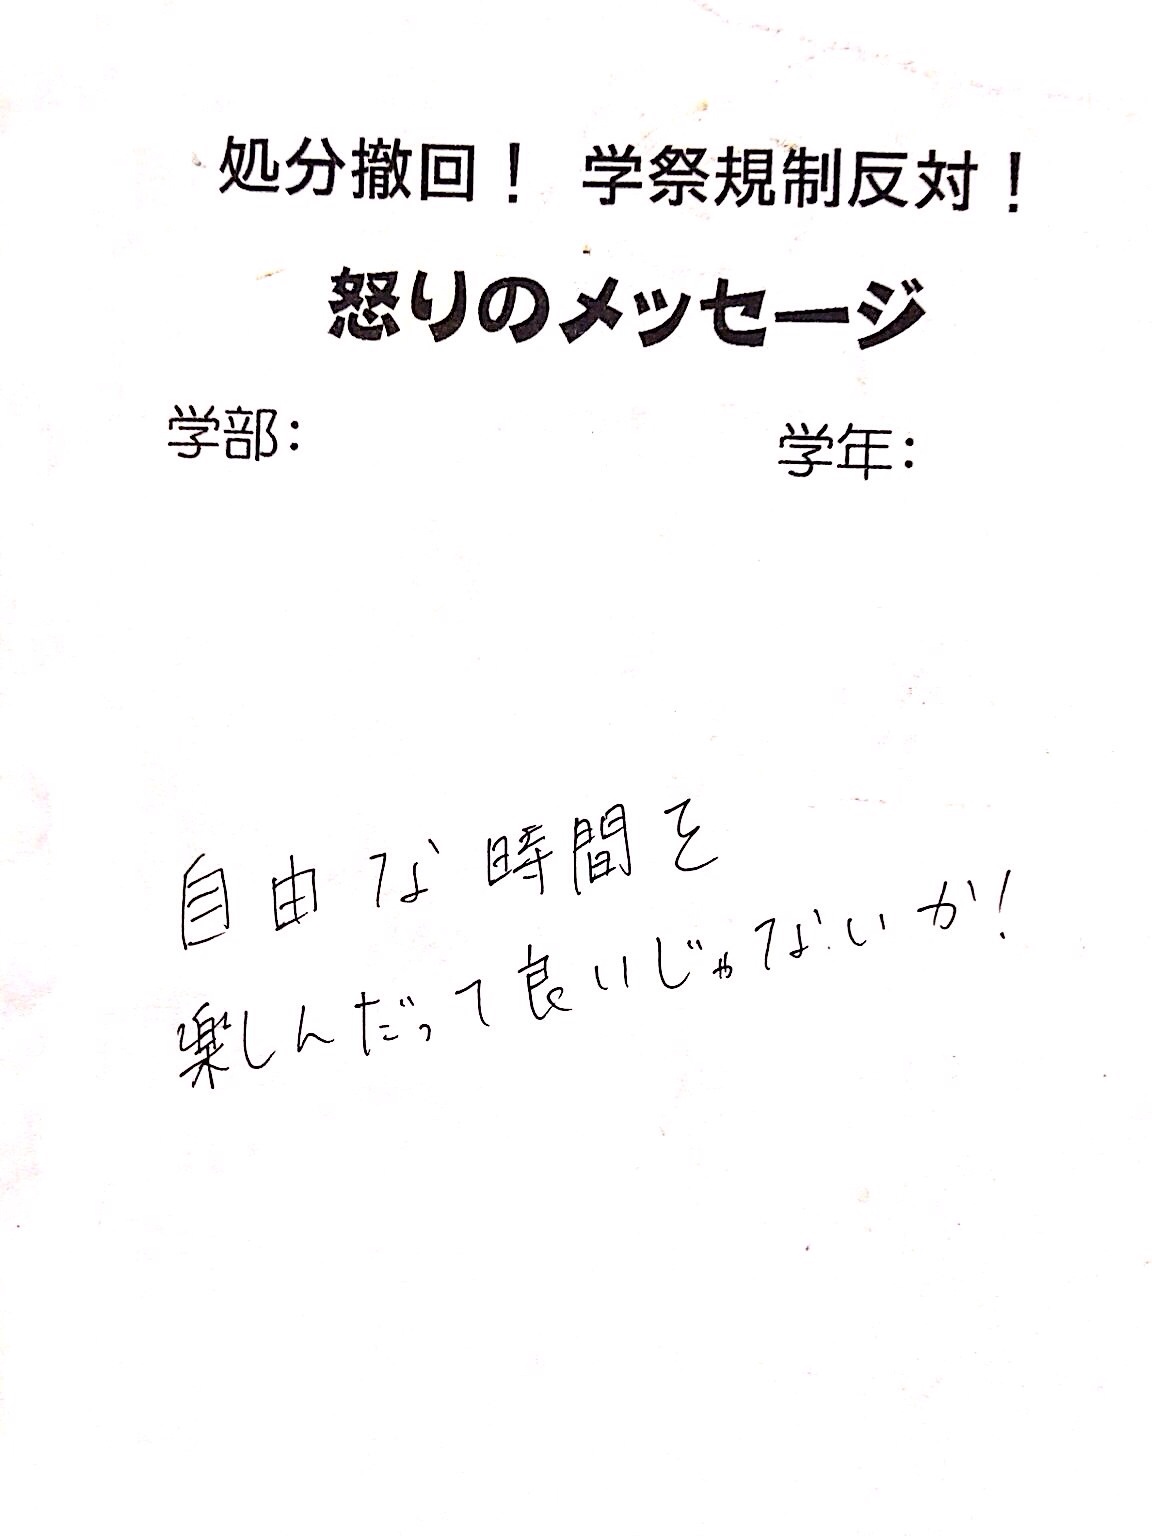 処分撤回！ 学祭規制反対！
怒りのメッセージ
学部： 学年：
自由な時間を
楽しんだって良いじゃないか！